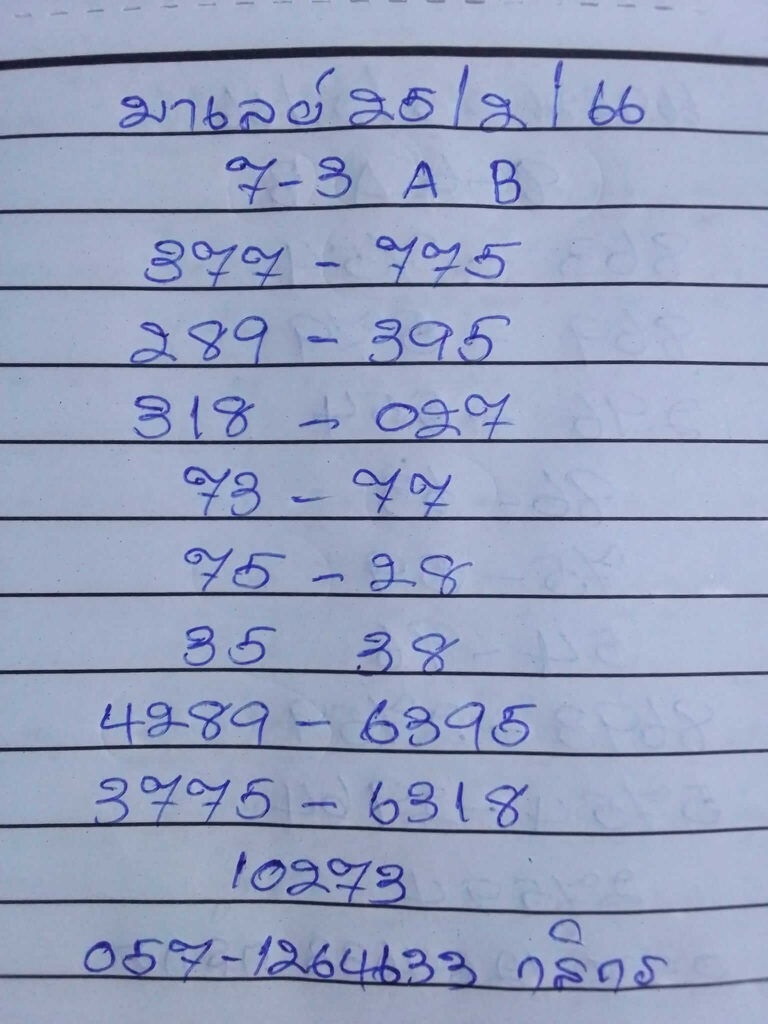 มาเลย์ 25/2/66
7-3 A B
377-775
289-395
318-027
73-77
75-28
35 38
4289-6395
3775-6318
10273
057-1264633 กสิกร